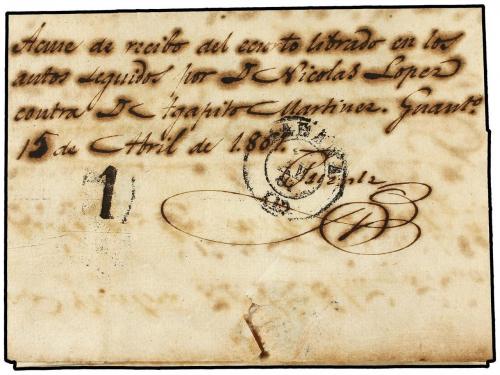 Acuse de recibo del ecsorto librado en los
autos seguidos por Dn Nicolas Lopez
contra Dn Agapito Martinez. Guanto.
15 de Abril de 1.861.
1